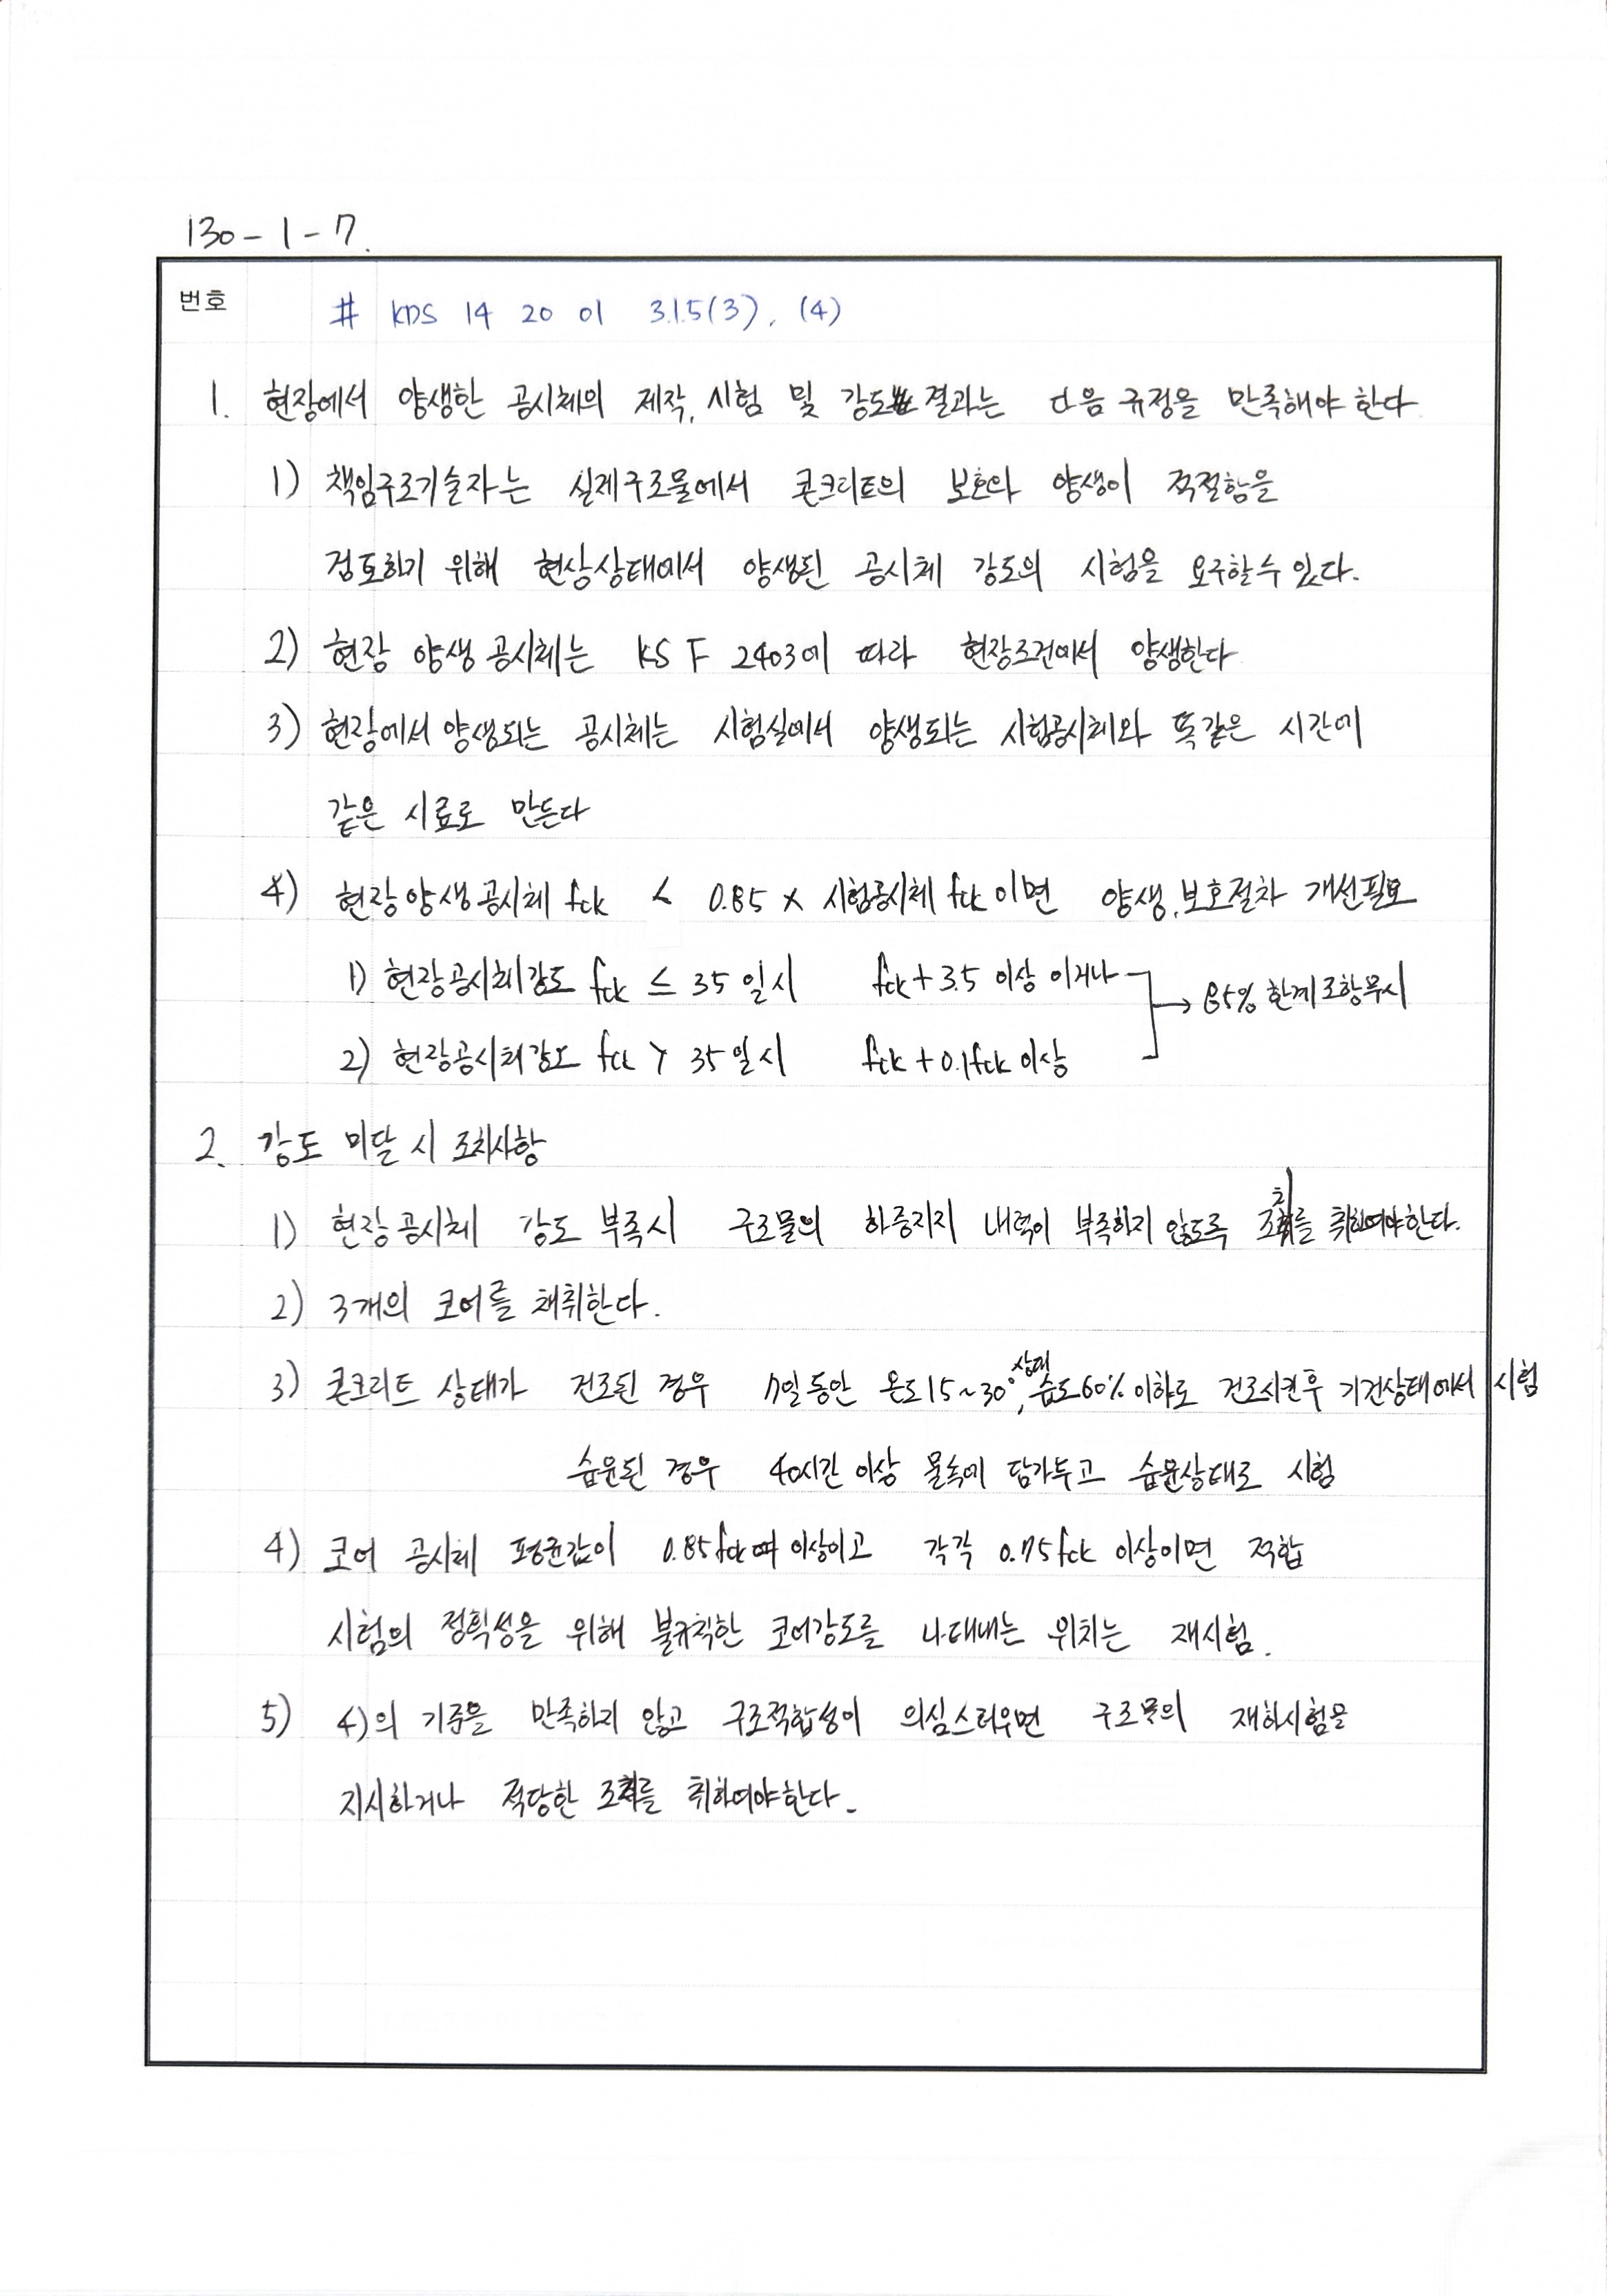 130-1-7.
번호
# KDS 14 20 01 3.1.5(3), (4)
1. 현장에서 양생한 공시체의 제작, 시험 및 강도 결과는 다음 규정을 만족해야 한다
1) 책임구조기술자는 실제구조물에서 콘크리트의 보호와 양생이 적절함을
검토하기 위해 현상상태에서 양생된 공시체 강도의 시험을 요구할 수 있다.
2) 현장 양생 공시체는 KS F 2403에 따라 현장조건에서 양생한다
3) 현장에서 양생되는 공시체는 시험실에서 양생되는 시험공시체와 똑같은 시간에
같은 시료로 만든다
4) 현장양생공시체 fck < 0.85 × 시험공시체 fck 이면 양생, 보호절차 개선필요
1) 현장공시체강도 fck ≤ 35 일시 fck + 3.5 이상 이거나
→ 85% 한계조항무시
2) 현장공시체강도 fck > 35 일시 fck + 0.1fck 이상
2. 강도 미달 시 조치사항
1) 현장공시체 강도 부족시 구조물의 하중지지 내력이 부족하지 않도록 조치를 취하여야한다.
2) 3개의 코어를 채취한다.
3) 콘크리트 상태가 건조된 경우 7일 동안 온도 15~30°, 상대습도 60% 이하로 건조시킨후 기건상태에서 시험
습윤된 경우 40시간 이상 물속에 담가두고 습윤상태로 시험
4) 코어 공시체 평균값이 0.85fck 이상이고 각각 0.75fck 이상이면 적합
시험의 정확성을 위해 불규칙한 코어강도를 나타내는 위치는 재시험.
5) 4)의 기준을 만족하지 않고 구조적합성이 의심스러우면 구조물의 재하시험을
지시하거나 적당한 조치를 취하여야한다.